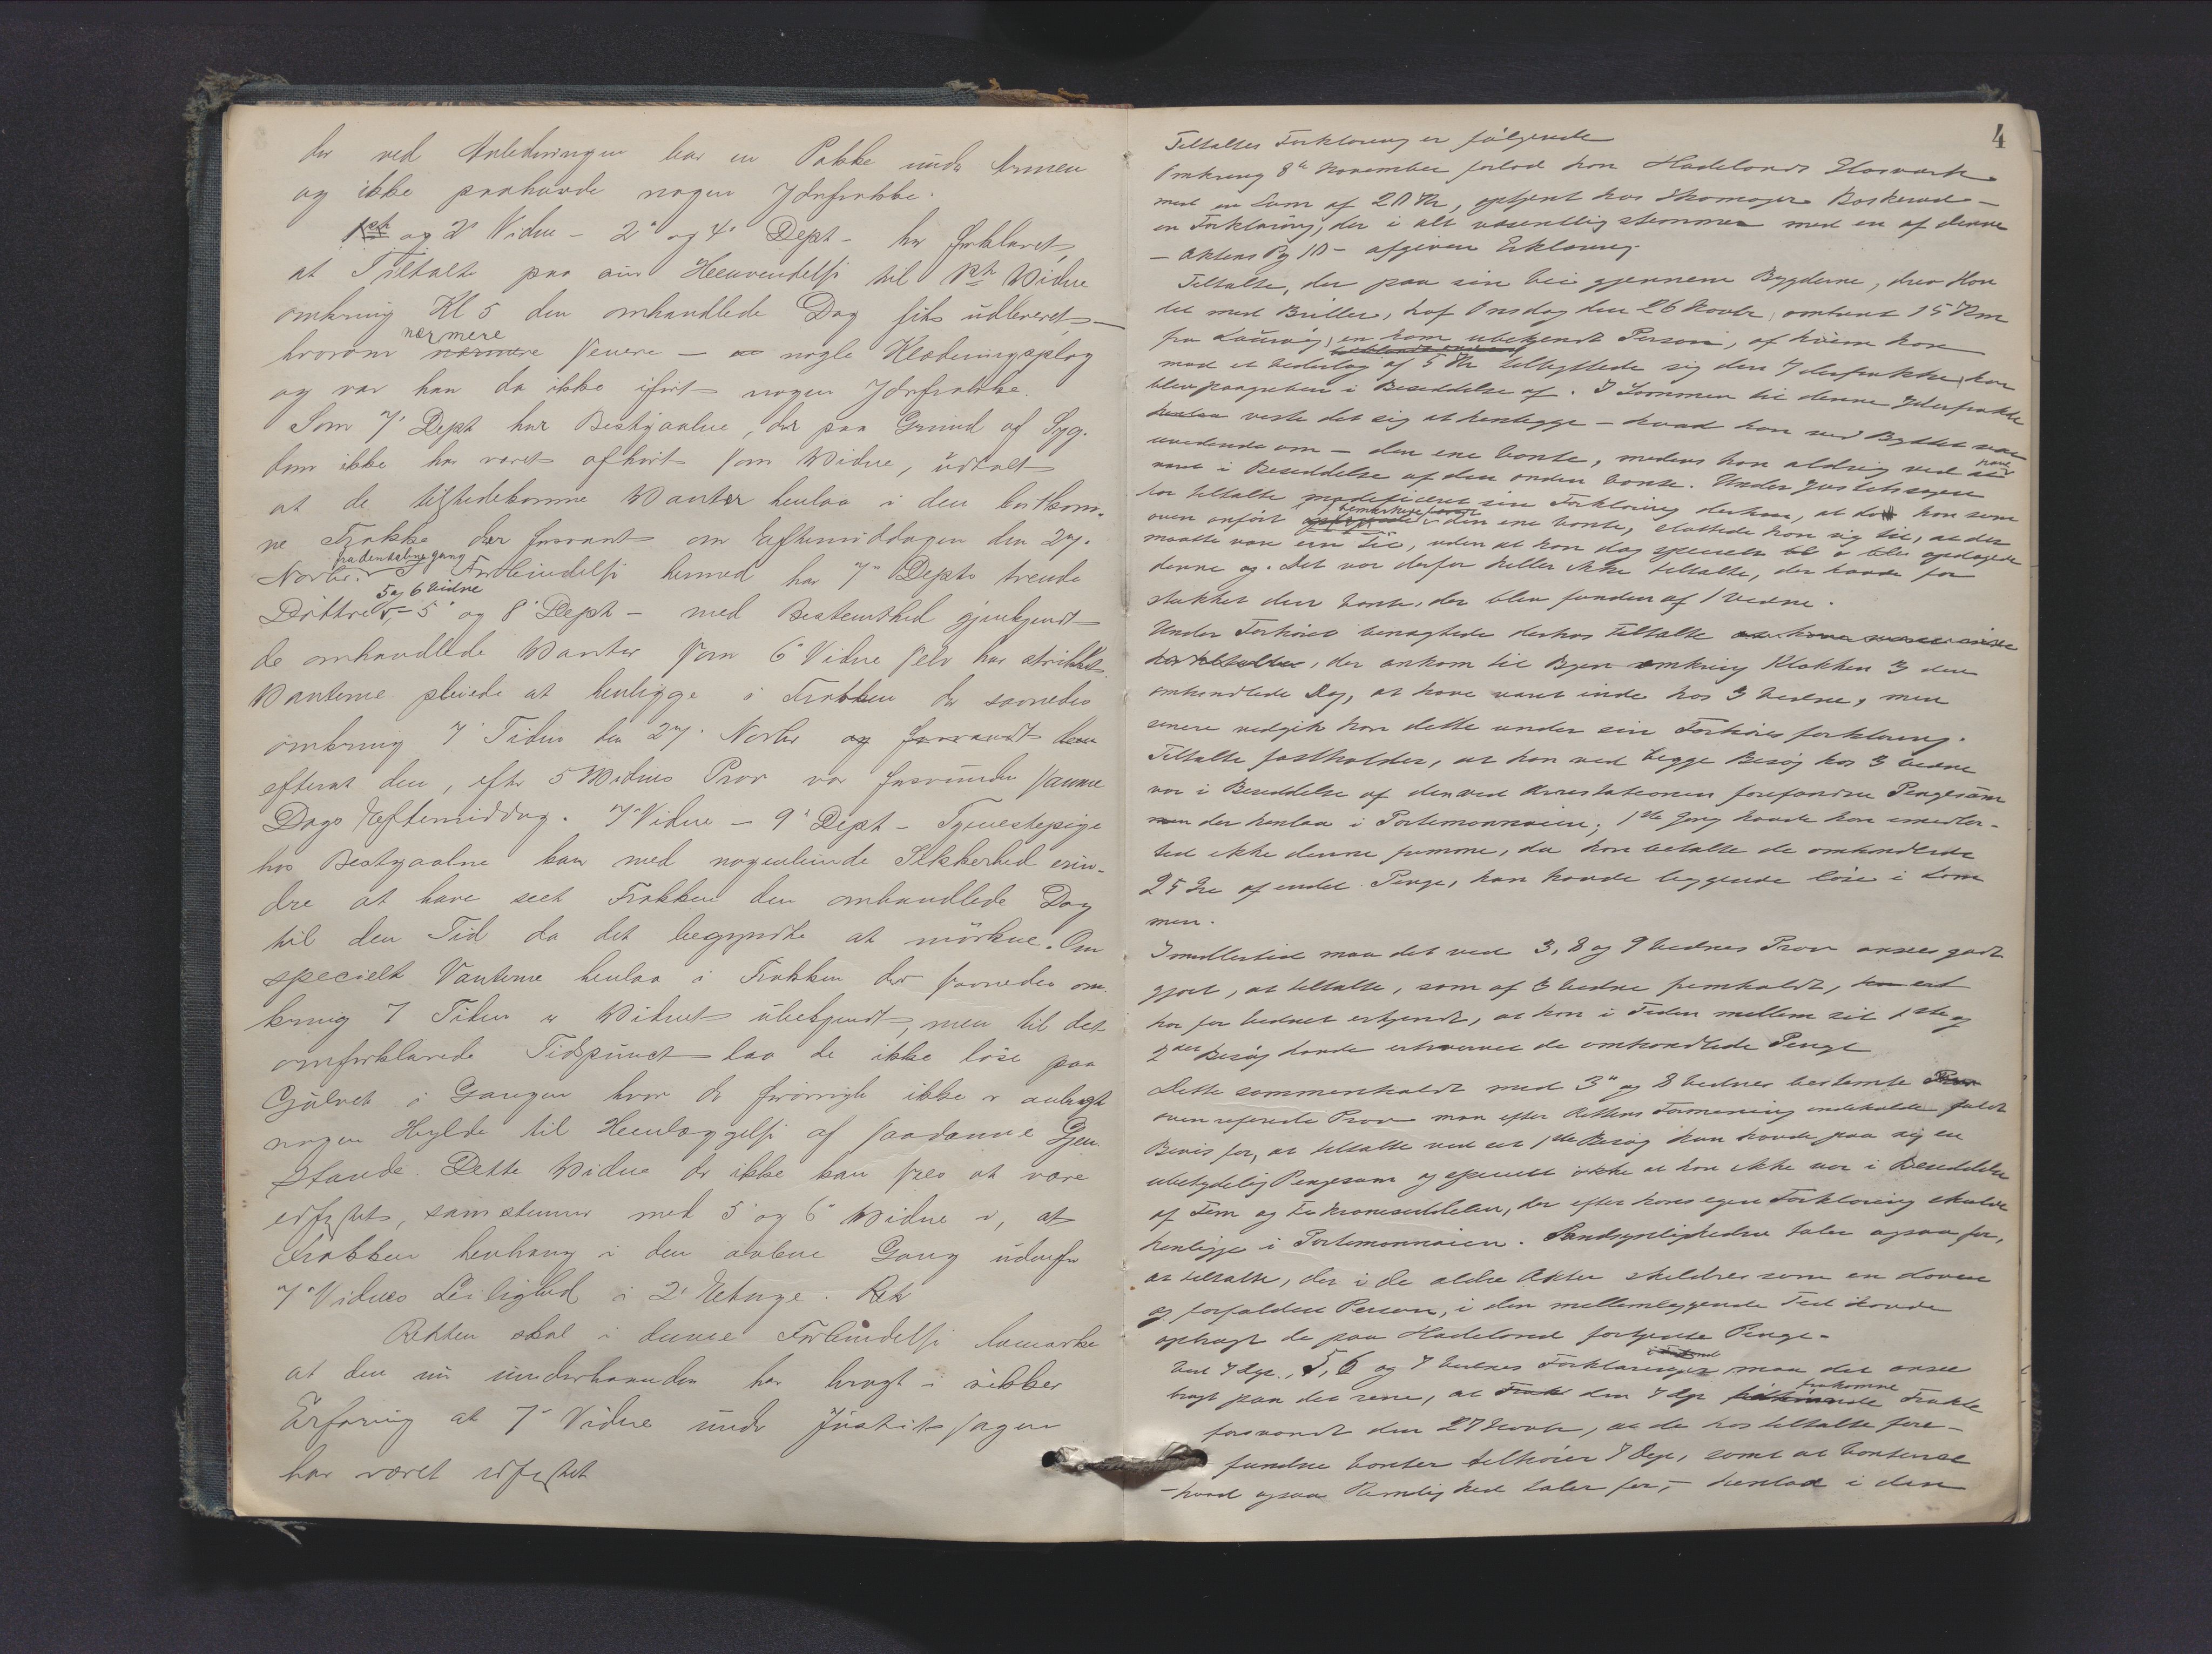 der ved Anledningen bar en Pakke under Armen
og ikke paahavde nogen Yderfrakke.
1ste og 2' Vidne - 2' og 4' Dept - har forklaret,
at Tiltalte paa sin Henvendelse til 1ste Vidne
omkring Kl 5 den omhandlede Dag fik udleveret -
nærmere
hvorom senere - nogle Klædningsplag
og var han da ikke iført nogen Yderfrakke.
Som 7' Dept har Bestyaalne, der paa Grund af Syg-
dom ikke har været afhørt som Vidne, udtalt
at de tilstedekomne Wanter henlaa i den bortkom-
ne Frakke der forsvant om Eftermiddagen den 27.
fra den aabne gang
Novbr. I Forbindelse hermed har 7' Depts trende
5 og 6 Vidne
Døttre - 5' og 8' Dept - med Bestemthed gjenkjendt
de omhandlede Wanter som 6' Vidne selv har strikket.
Wanterne pleiede at henligge i Frakken der savnedes
omkring 7 Tiden den 27. Novbr og forsvandt den
efterat den, efter 5 Widnes Prov var forsvunden samme
Dags Eftermiddag. 7' Vidne - 9' Dept - Tjenestepige
hos Bestjaalne kan med nogenlunde Sikkerhed erin-
dre at have seet Frakken den omhandlede Dag
til den Tid da det begyndte at mørkne. Om
specielt Vanterne henlaa i Frakken der savnedes om-
kring 7 Tiden er Widnet ubekjendt, men til det
omforklarede Tidspunct laa de ikke løse paa
Gulvet i Gangen hvor der forøvrigt ikke er anbragt
nogen Hylde til Henlæggelse af saadanne Gjen-
stande. Dette Widne der ikke kan sees at være
edfæstet, samstemmer med 5' og 6' Widne i, at
Frakken henhang i den aabne Gang udenfor
7' Vidnes Leilighed i 2' Etage. Ret
Retten skal i denne Forbindelse bemærke
at den nu underhaanden har bragt i sikker
Erfaring at 7' Vidne under Justitssagen
har været edfæstet
4
Tiltaltes Forklaring er følgende
Omkring 8de November forlod han Hadelands Glasværk
med en Sum af 20 Kr, optjent hos Skomager Baskerud -
en Forklaring, der i alt væsentlig stemmer med en af denne
- Aktens Pg 10 - afgiven Erklæring.
Tiltalte, der paa sin Vei gjennem Bygderne, drev Han
del med Briller, traf Onsdag den 26 Novbr, omtrent 15 Km
fra Laurvig, en ham ubekjendt Person, af hvem han
mod et Vederlag af 5 Kr tilbyttede sig den Yderfrakke, han
blev paagreben i Besiddelse af. I Lommen til denne Yderfrakke
viste det sig at henligge - hvad han ved Byttet var
uvidende om - den ene Vante, medens han aldrig ved
have
været i Besiddelse af den anden Vante. Under Justitssagen
har tiltalte modificeret sin Forklaring derhen, at da han som
oven anført den ene Vante, sluttede han sig til, at der
maatte være en til, uden at han dog specielt blev opdaget
denne og. Det var derfor heller ikke tiltalte, der havde for
stukket den Vante, der blev funden af 1 Vidne.
Under Forhøret benægtede derhos tiltalte
, der ankom til Byen omkring Klokken 3 den
omhandlede Dag, at have været inde hos 3 Vidne, men
senere vedgik han dette under sin Forhørs forklaring.
Tiltalte fastholder, at han ved begge Besøg hos 3 Vidne
var i Besiddelse af den ved Arrestationen forefundne Pengesum
der henlaa i Portemonnaien; 1ste Gang havde han imidler-
tid ikke denne fremme, da han betalte de omhandlede
25 Øre af endel Penge, han havde liggende løse i Lom
men.
Imidlertid maa det ved 3, 8 og 9 Vidnes Prov ansees godt
gjort, at tiltalte, som af 3 Vidne fremholdt,
har for Vidnet erkjendt, at han i Tiden mellem sit 1ste og
2det Besøg havde erhvervet de omhandlede Penge
Dette sammenholdt med 3' og 8 Vidnes bestemte
oven refererede Prov maa efter Rettens Formening indeholde fuldt
Bevis for, at tiltalte ved sit 1ste Besøg kun havde paa sig en
ubetydelig Pengesum og specielt at han ikke var i Besiddelse
af Fem og Ti Kronesedelen, der efter hans egen Forklaring skulde
henligge i Portemonnaien. Sandsynligheden taler ogsaa for,
at tiltalte, der i de ældre Akter skildres som en doven
og forfalden Person, i den mellemliggende Tid havde
opbrugt de paa Hadeland fortjente Penge.
Ved 7 Dpt., 5, 6 og 7 Vidnes Forklaringer maa det ansees
frakomne
bragt paa det rene, at den 7 Dpt Frakke
forsvandt den 27 Novbr, at de hos tiltalte fore-
fundne Vanter tilhører 7 Dept, samt at Vanterne
- hvad ogsaa Rimelighed taler for, - henlaa i den